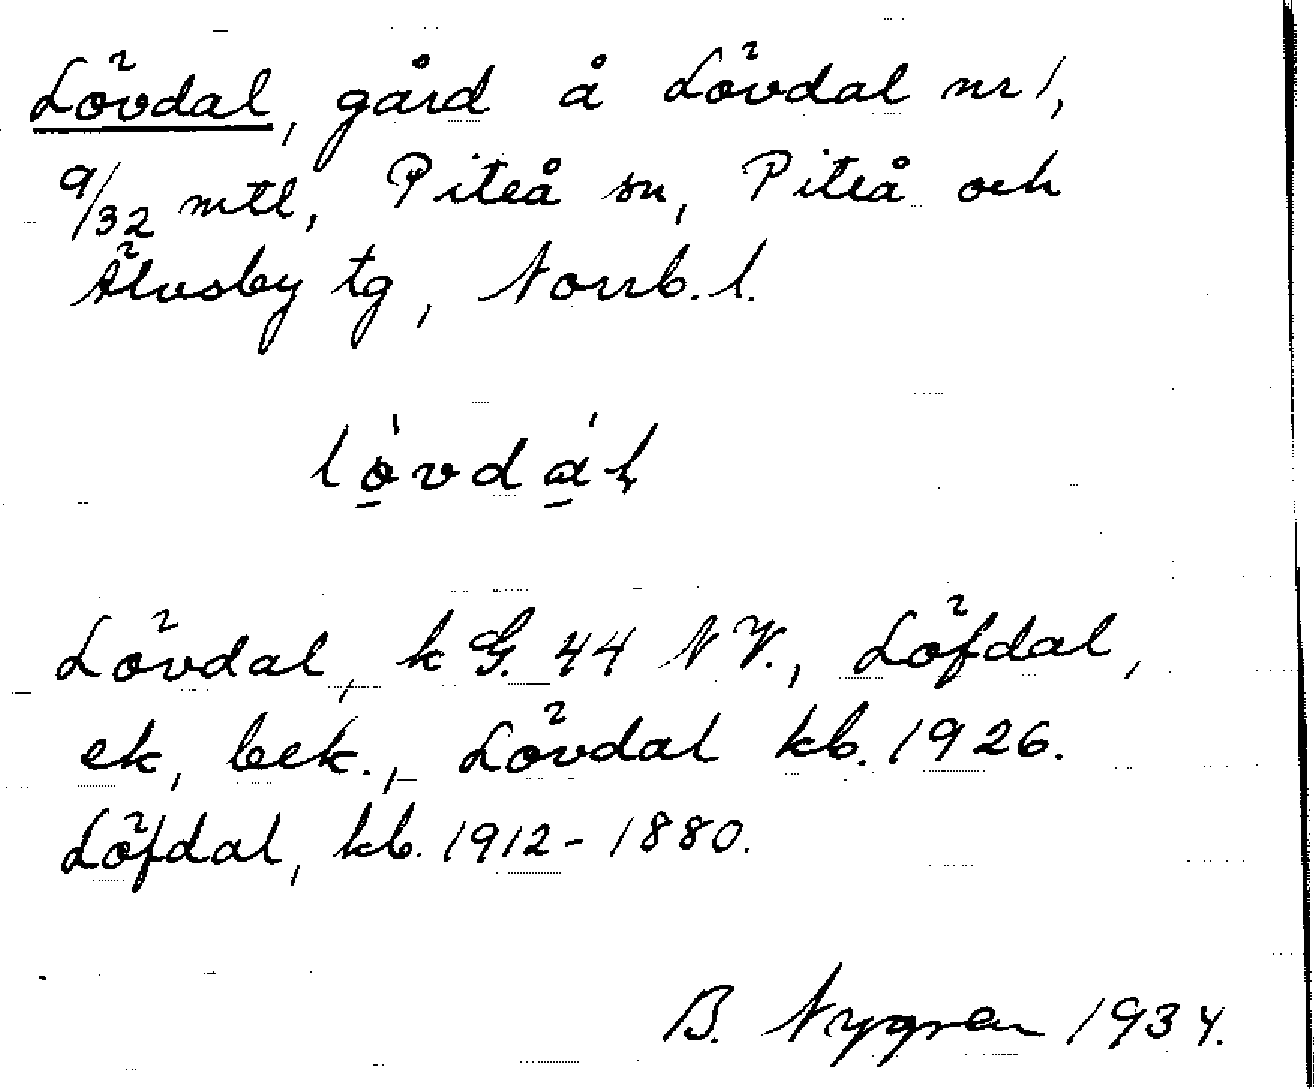 Lövdal, gård å Lövdal nr 1,
9/32 mtl, Piteå sn, Piteå och
Älvsby tg, Norrb. l.
lȯ̱vdá̱ł
Lövdal, k G. 44 N V., Löfdal,
ek, bek., Lövdal kb. 1926.
Löfdal, kb. 1912-1880.
B. Nygren 1934.